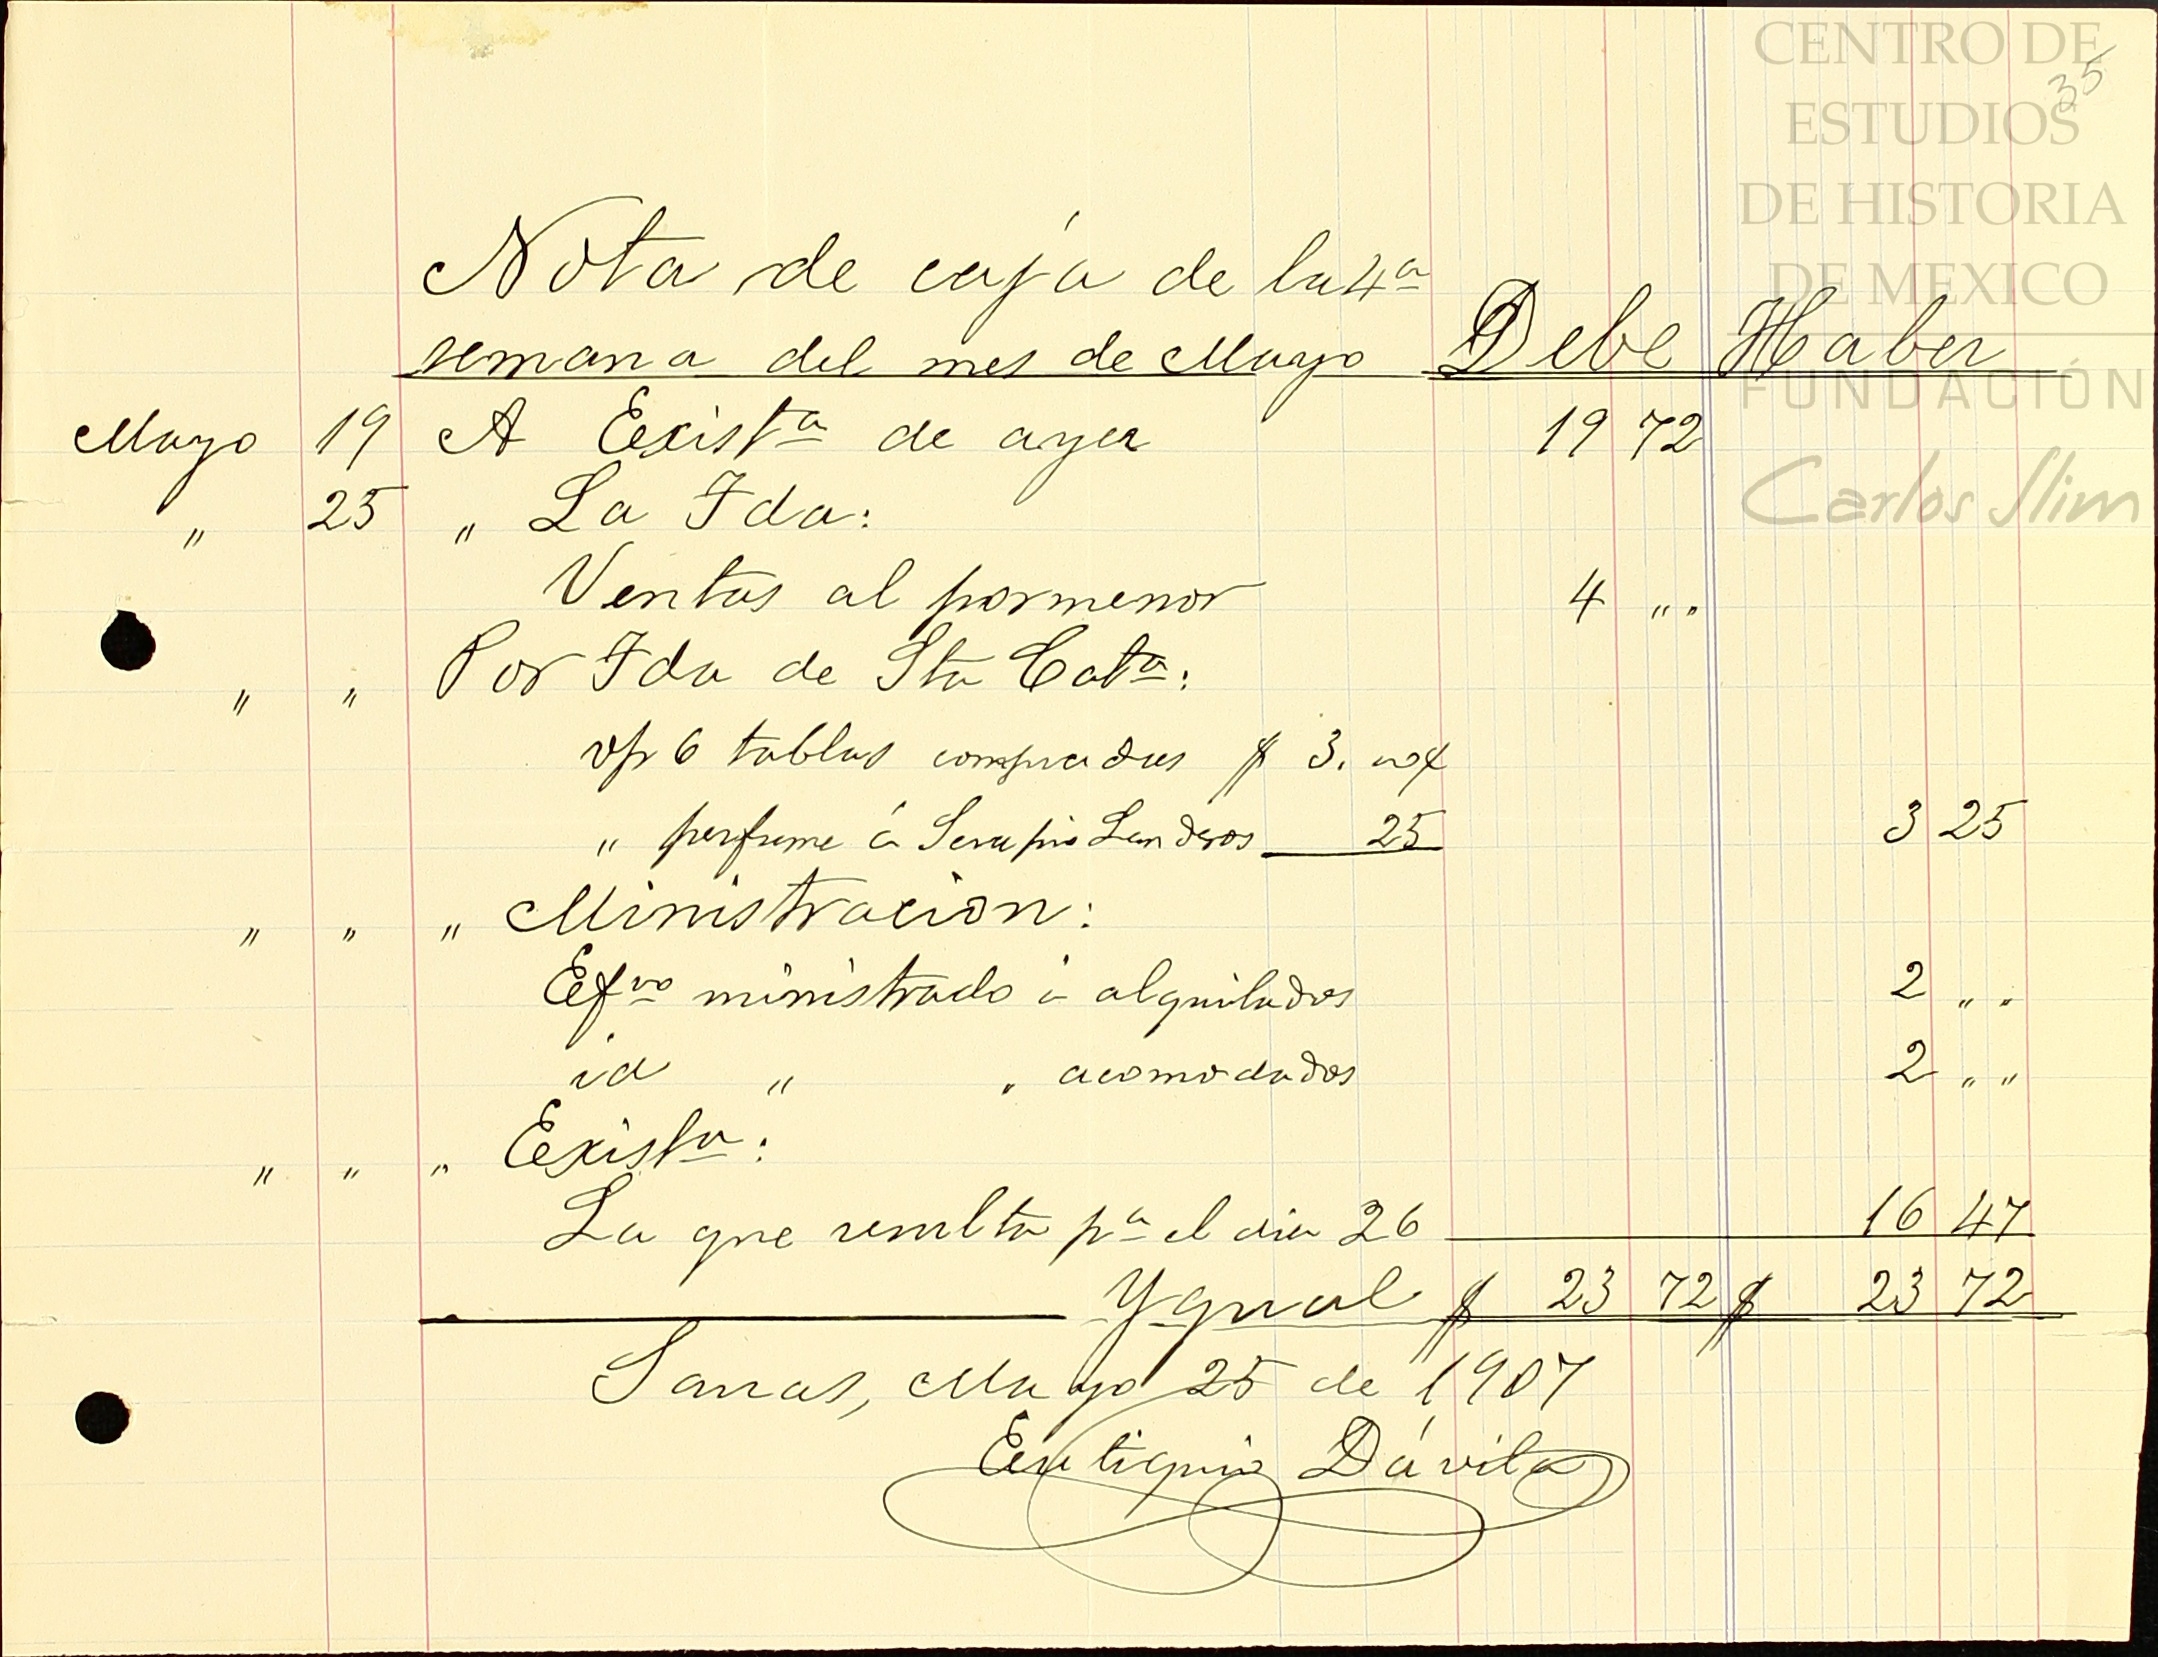 CENTRO DE
ESTUDIOS
DE HISTORIA
DE MEXICO
FUNDACIÓN
Carlos Slim
35
Nota de caja de la 4ª
semana del mes de Mayo Debe Haber
Mayo 19 A Existª de ayer 19 72
" 25 " La Fda:
Ventas al pormenor 4 " "
" " Por Fda de Sta Catª:
vp 6 tablas compradas $ 3.
" perfume á Serapio Landeros 25 3 25
" " " Ministracion:
Efvo ministrado á alquilados 2 " "
id " " acomodados 2 " "
" " " Existª:
La que resulta pª el dia 26 16 47
Ygual $ 23 72 $ 23 72
Mayo 25 de 1907
Eutiquio Dávila